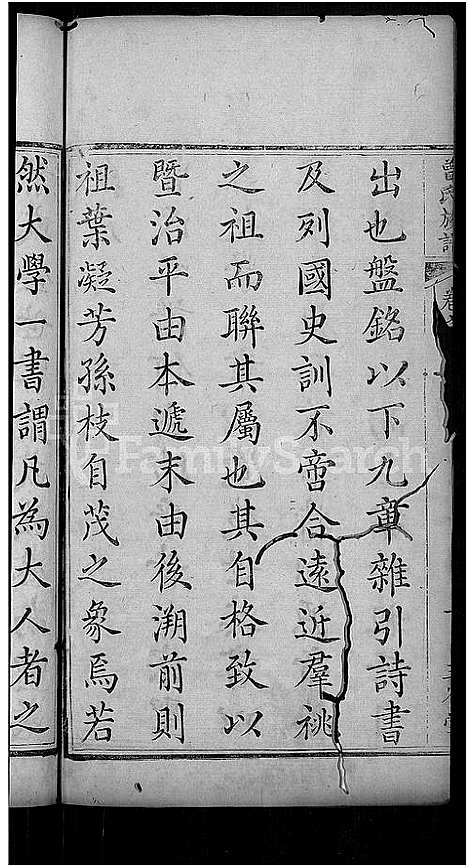 曾氏族譜
出也盤銘以下九章雜引詩書
及列國史訓不啻合遠近羣祧
之祖而聯其屬也其自格致以
暨治平由本遞末由後溯前則
祖葉凝芳孫枝自茂之象焉若
然大學一書謂凡為大人者之
FamilySearch